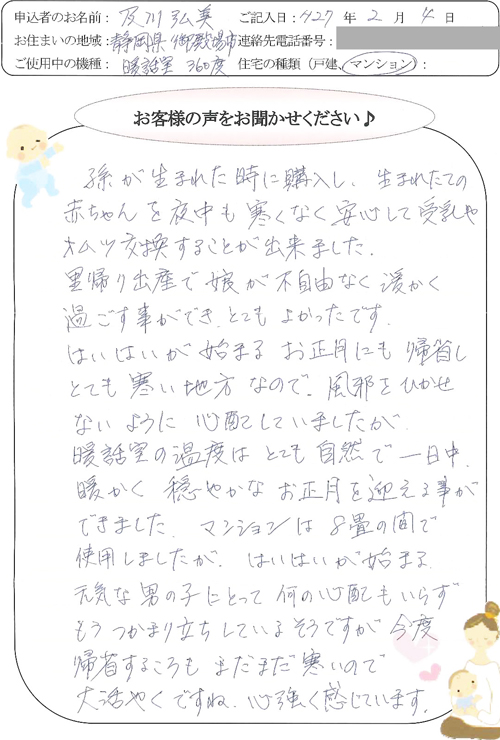 申込者のお名前：及川弘美 ご記入日：H27年2月4日
お住まいの地域：静岡県御殿場市 連絡先電話番号：
ご使用中の機種：暖話室 360度 住宅の種類（戸建、マンション）：
お客様の声をお聞かせください♪
孫が生まれた時に購入し、生まれたての
赤ちゃんを夜中も寒くなく安心して受乳や
オムツ交換することが出来ました。
里帰り出産で娘が不自由なく暖かく
過ごす事ができ、とてもよかったです。
はいはいが始まるお正月にも帰省し
とても寒い地方なので、風邪をひかせ
ないように心配していましたが、
暖話室の温度はとても自然で一日中、
暖かく穏やかなお正月を迎える事が
できました。マンションは8畳の間で
使用しましたが、はいはいが始まる
元気な男の子にとって何の心配もいらず
もうつかまり立ちしているそうですが今度
帰省するころもまだまだ寒いので
大活やくですね。心強く感じています。